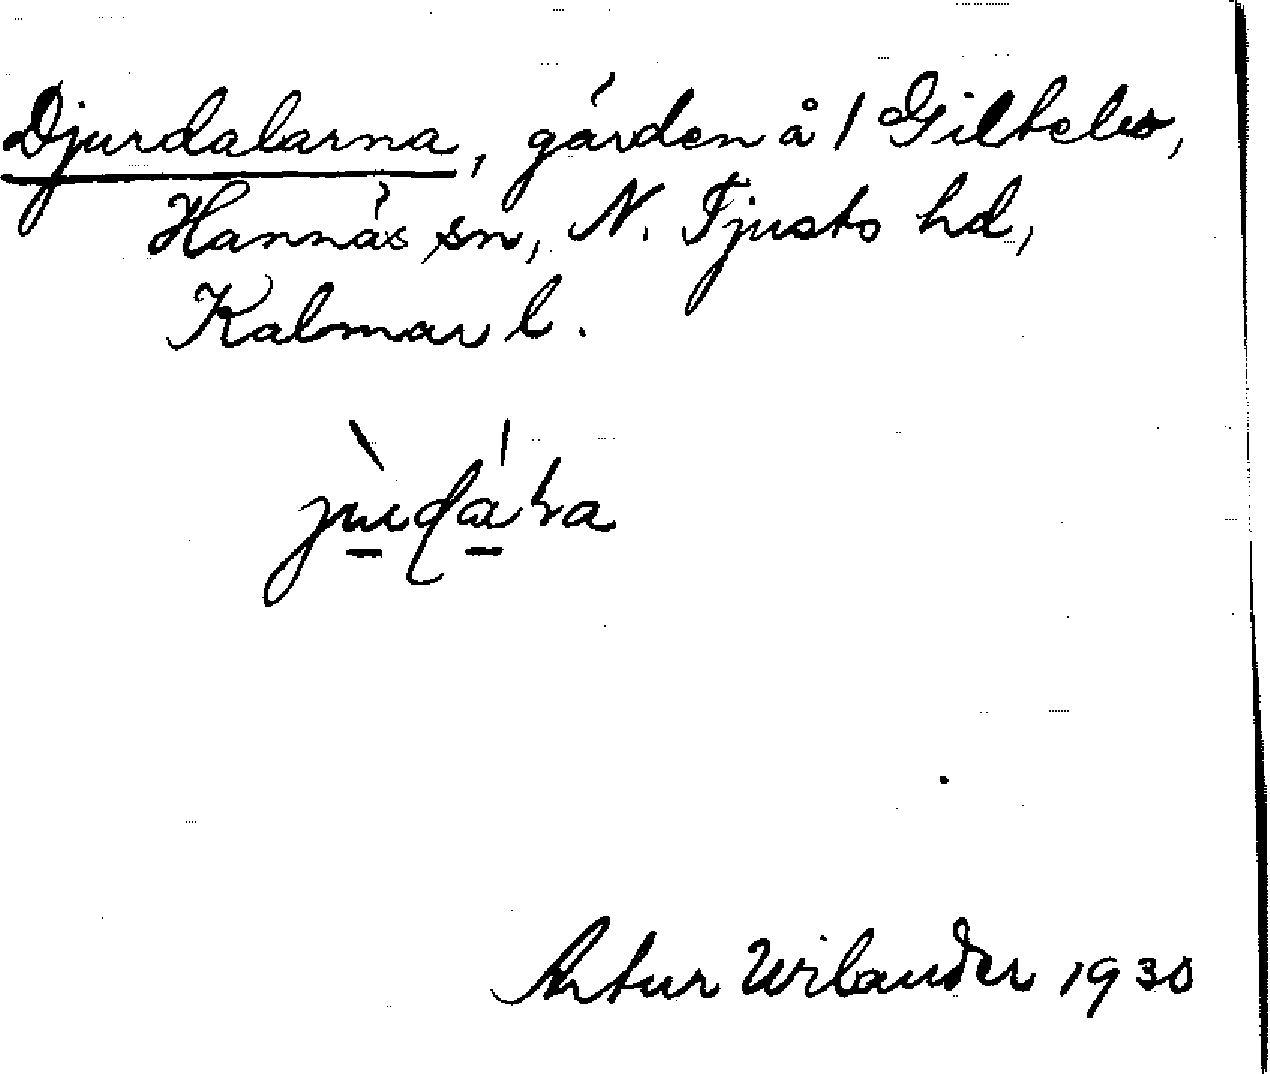 Djurdalarna, gården å 1 Gilteleo,
Hannäs sn, N. Tjusts hd,
Kalmar l.
Artur Wilander 1930